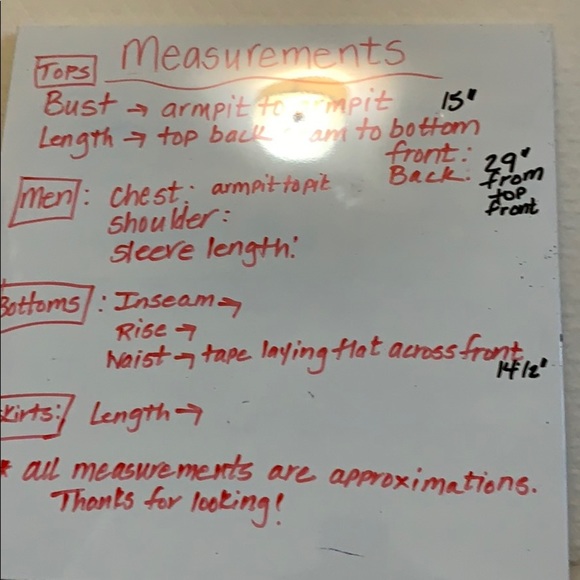 Measurements
Tops
Bust → armpit to armpit 15"
Length → top back to bottom
front:
Back: 29" from top front
Men: Chest: armpit to pit
shoulder:
sleeve length:
Bottoms: Inseam →
Rise →
Waist → tape laying flat across front
14 1/2"
skirts: Length →
* all measurements are approximations.
Thanks for looking!